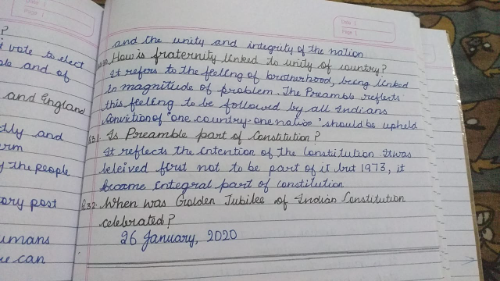 ?
vote to elect
and of
and England
and
the people
post
umans
can
and the unity and integrity of the nation.
How is fraternity linked to unity of country?
It refers to the feeling of brotherhood, being linked
to magnitude of problem. The Preamble reflects
this feeling to be followed by all Indians
Conviction of "one country-one native" should be upheld
Is Preamble part of Constitution?
It reflects the intention of the Constitution. It was
beleived first not to be part of it but 1973, it
became integral part of constitution
When was Golden Jubilee of Indian Constitution
celebrated?
26 January, 2020